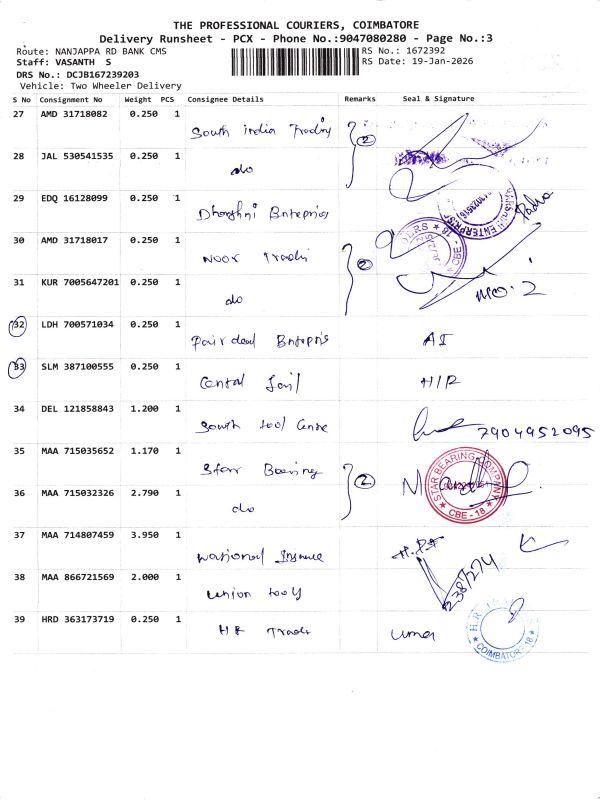 THE PROFESSIONAL COURIERS, COIMBATORE
Delivery Runsheet - PCX - Phone No.:9047080280 - Page No.:3
Route: NANJAPPA RD BANK CMS RS No.: 1672392
Staff: VASANTH S RS Date: 19-Jan-2026
DRS No.: DCJB167239203
Vehicle: Two Wheeler Delivery
S No Consignment No Weight PCS Consignee Details Remarks Seal & Signature
27 AMD 31718082 0.250 1 South India Trading 2
28 JAL 530541535 0.250 1 do
29 EDQ 16128099 0.250 1 Dharshni Enterprises
ENTERPRISES
30 AMD 31718017 0.250 1 Noor Trads 2
CBE - 18
31 KUR 7005647201 0.250 1 do MO. 2
32 LDH 700571034 0.250 1 Fair deal Enterpris AI
33 SLM 387100555 0.250 1 Central H/R
34 DEL 121858843 1.200 1 South tool Centre 7904952095
35 MAA 715035652 1.170 1 Star Bearing 2
STAR BEARING COMPANY
CBE - 18
36 MAA 715032326 2.790 1 do
37 MAA 714807459 3.950 1 National
38 MAA 866721569 2.000 1 Union tools 238/274
39 HRD 363173719 0.250 1 HR Trads uma
COIMBATORE-18